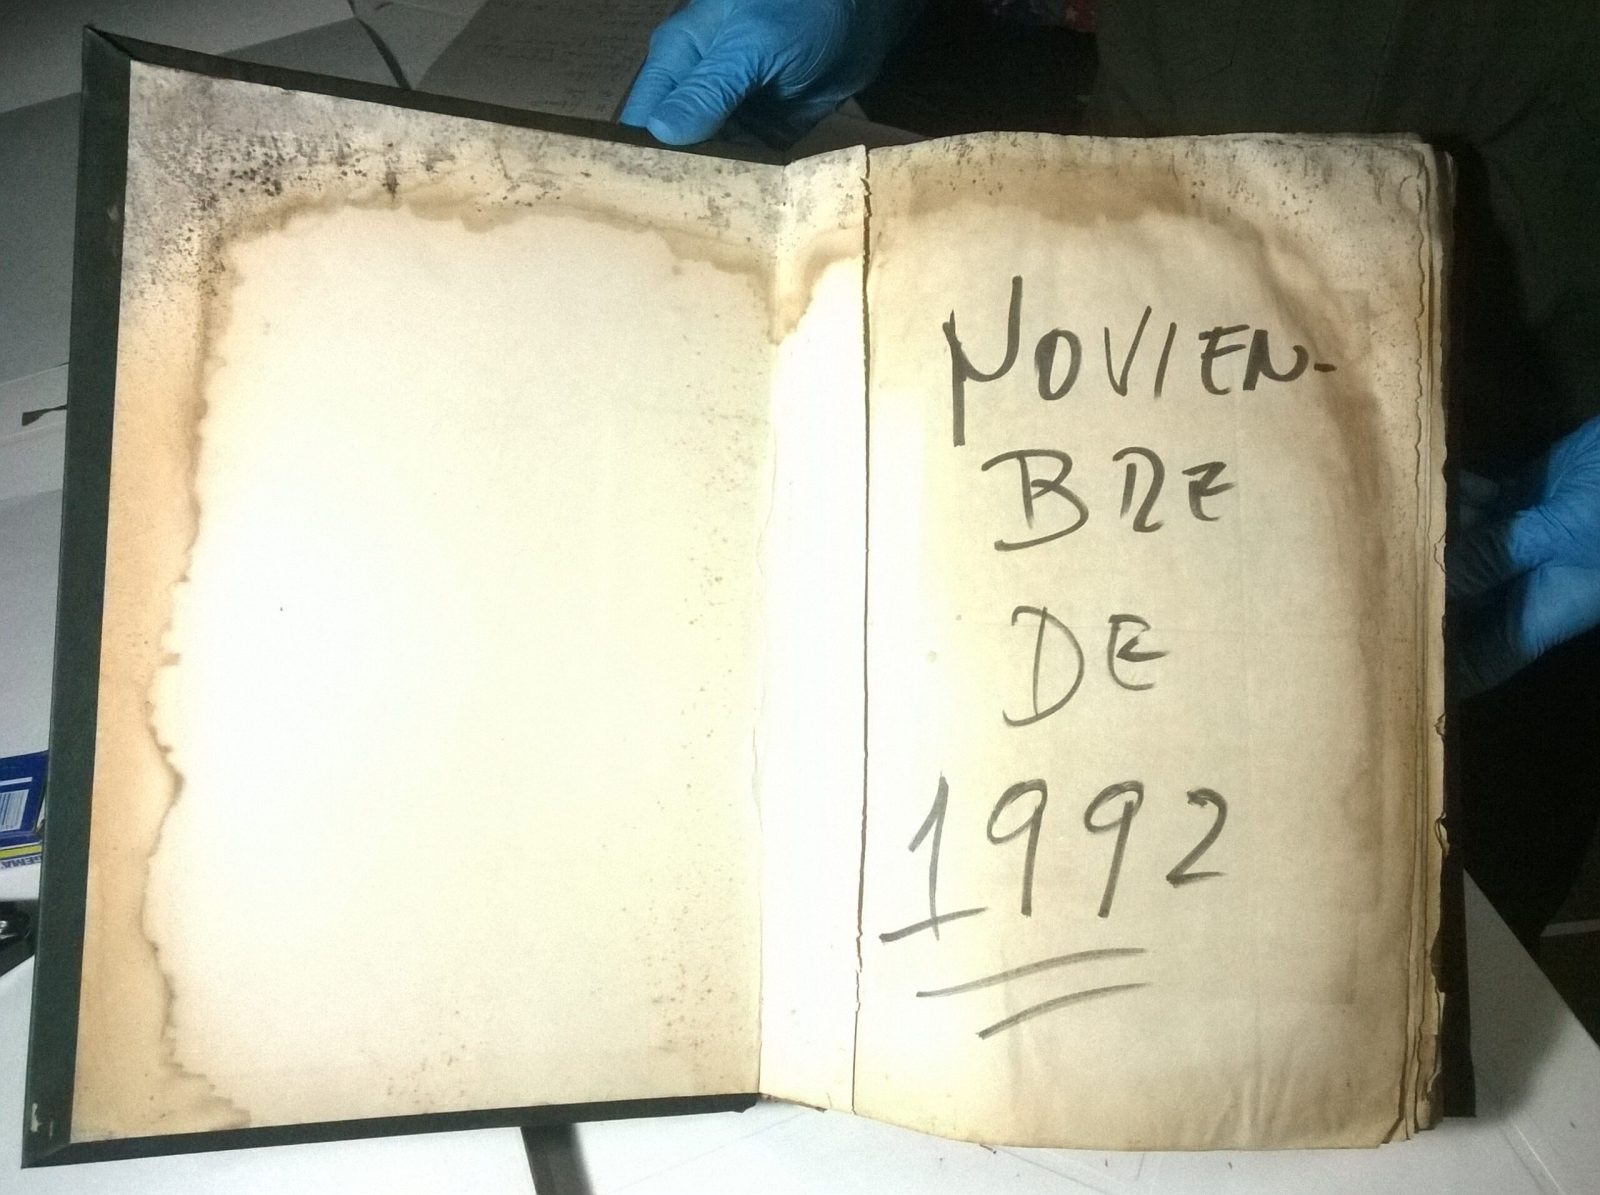 NOVIEN-
BRE
DE
1992